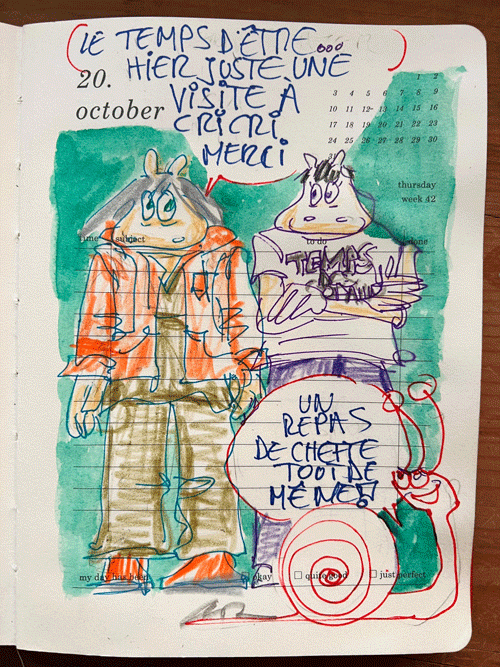 LE TEMPS D'ÊTRE...
HIER JUSTE UNE
VISITE À
CRICRI
MERCI
20.
october
1 2
3 4 5 6 7 8 9
10 11 12 13 14 15 16
17 18 19 20 21 22 23
24 25 26 27 28 29 30
31
thursday
week 42
time subject
to do
done
TEMPS
UN
REPAS
DE CHEFFE
TOUT DE
MÊME!
my day has been
okay
☐ quite good
☐ just perfect